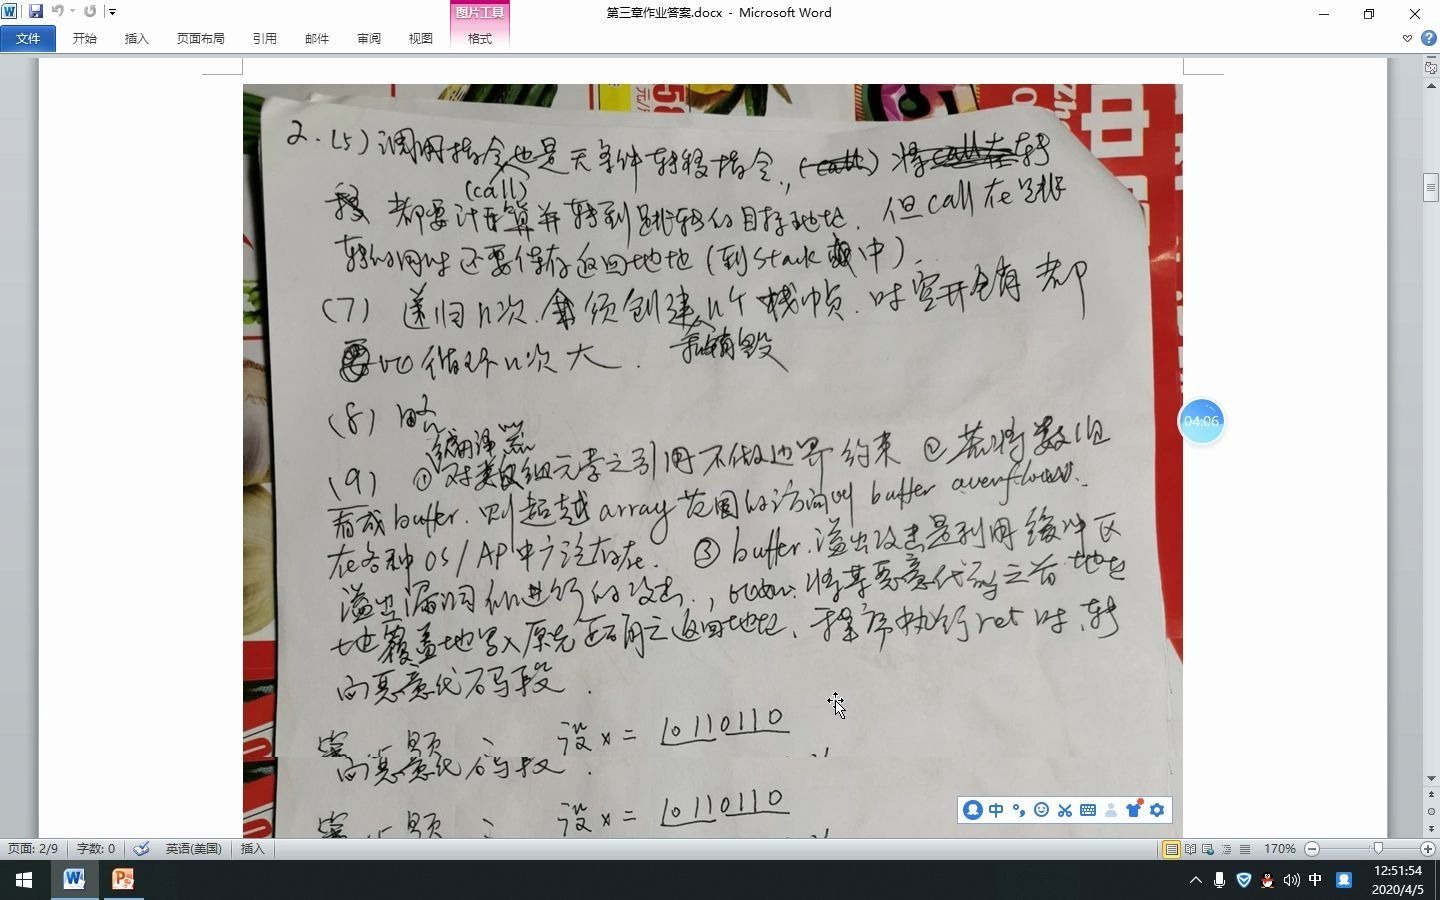 第三章作业答案.docx - Microsoft Word
图片工具
文件 开始 插入 页面布局 引用 邮件 审阅 视图 格式
2.(5) 调用指令也是无条件转移指令, 将 转
(call)
移 都要计算并转到跳转的目标地址, 但call在跳
转的同时还要保存返回地址(到stack中).
(7) 递归n次, 须创建n个栈帧, 时空开销有都
和销毁
要比循环n次大.
(8) 略
编译器
(9) ① 对数组元素之引用不做边界约束 ② 若将数组
看成buffer, 则超越array范围的访问叫buffer overflow.
在各种OS/AP中广泛存在. ③ buffer 溢出攻击是利用缓冲区
溢出漏洞所进行的攻击, 将某恶意代码之首地址
地覆盖地写入原先正确之返回地址, 程序执行ret时, 转
向恶意代码段.
设x = 10110110
向恶意代码段.
设x = 10110110
04:06
中
页面: 2/9 字数: 0 英语(美国) 插入 170%
中 12:51:54
2020/4/5